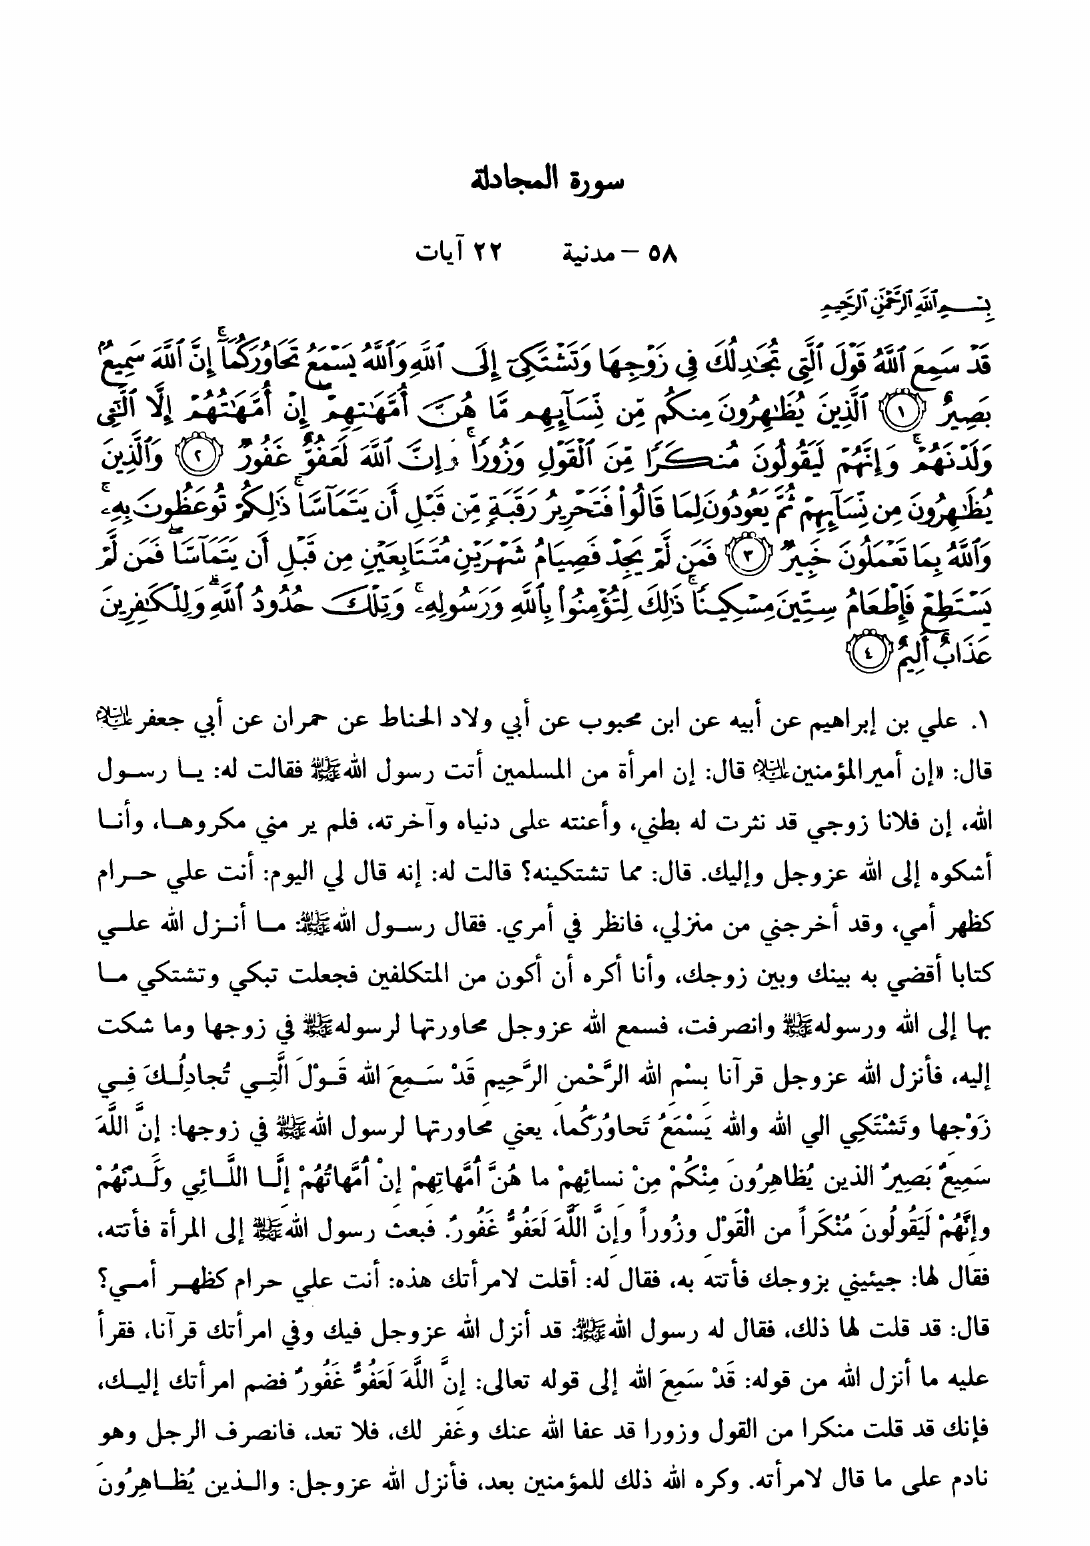 سورة المجادلة
٥٨ – مدنية ٢٢ آيات
بِسْمِ اللَّهِ الرَّحْمَٰنِ الرَّحِيمِ
قَدْ سَمِعَ ٱللَّهُ قَوْلَ ٱلَّتِي تُجَٰدِلُكَ فِي زَوْجِهَا وَتَشْتَكِيٓ إِلَى ٱللَّهِ وَٱللَّهُ يَسْمَعُ تَحَاوُرَكُمَآ ۚ إِنَّ ٱللَّهَ سَمِيعٌۢ
بَصِيرٌ ١ ٱلَّذِينَ يُظَٰهِرُونَ مِنكُم مِّن نِّسَآئِهِم مَّا هُنَّ أُمَّهَٰتِهِمْ ۖ إِنْ أُمَّهَٰتُهُمْ إِلَّا ٱلَّٰٓئِي
وَلَدْنَهُمْ ۚ وَإِنَّهُمْ لَيَقُولُونَ مُنكَرًا مِّنَ ٱلْقَوْلِ وَزُورًا ۚ وَإِنَّ ٱللَّهَ لَعَفُوٌّ غَفُورٌ ٢ وَٱلَّذِينَ
يُظَٰهِرُونَ مِن نِّسَآئِهِمْ ثُمَّ يَعُودُونَ لِمَا قَالُوا۟ فَتَحْرِيرُ رَقَبَةٍ مِّن قَبْلِ أَن يَتَمَآسَّا ۚ ذَٰلِكُمْ تُوعَظُونَ بِهِۦ ۚ
وَٱللَّهُ بِمَا تَعْمَلُونَ خَبِيرٌ ٣ فَمَن لَّمْ يَجِدْ فَصِيَامُ شَهْرَيْنِ مُتَتَابِعَيْنِ مِن قَبْلِ أَن يَتَمَآسَّا ۖ فَمَن لَّمْ
يَسْتَطِعْ فَإِطْعَامُ سِتِّينَ مِسْكِينًا ۚ ذَٰلِكَ لِتُؤْمِنُوا۟ بِٱللَّهِ وَرَسُولِهِۦ ۚ وَتِلْكَ حُدُودُ ٱللَّهِ ۗ وَلِلْكَٰفِرِينَ
عَذَابٌ أَلِيمٌ ٤
١. علي بن إبراهيم عن أبيه عن ابن محبوب عن أبي ولاد الحناط عن حمران عن أبي جعفر عليه السلام
قال: «إن أمير المؤمنين عليه السلام قال: إن امرأة من المسلمين أتت رسول الله ﷺ فقالت له: يا رسول
الله، إن فلانا زوجي قد نثرت له بطني، وأعنته على دنياه وآخرته، فلم ير مني مكروها، وأنا
أشكوه إلى الله عزوجل وإليك. قال: مما تشتكينه؟ قالت له: إنه قال لي اليوم: أنت علي حرام
كظهر أمي، وقد أخرجني من منزلي، فانظر في أمري. فقال رسول الله ﷺ: ما أنزل الله علي
كتابا أقضي به بينك وبين زوجك، وأنا أكره أن أكون من المتكلفين فجعلت تبكي وتشتكي ما
بها إلى الله ورسوله ﷺ وانصرفت، فسمع الله عزوجل محاورتها لرسوله ﷺ في زوجها وما شكت
إليه، فأنزل الله عزوجل قرآنا بِسْمِ الله الرَّحْمنِ الرَّحِيمِ قَدْ سَمِعَ الله قَوْلَ الَّتِي تُجادِلُكَ فِي
زَوْجِها وتَشْتَكِي الي الله والله يَسْمَعُ تَحاوُرَكُما، يعني محاورتها لرسول الله ﷺ في زوجها: إِنَّ اللَّهَ
سَمِيعٌ بَصِيرٌ الذين يُظاهِرُونَ مِنْكُمْ مِنْ نسائِهِمْ ما هُنَّ أُمَّهاتِهِمْ إِنْ أُمَّهاتُهُمْ إِلَّا اللَّائِي وَلَدْنَهُمْ
وإِنَّهُمْ لَيَقُولُونَ مُنْكَراً مِنَ الْقَوْلِ وزُوراً وإِنَّ اللَّهَ لَعَفُوٌّ غَفُورٌ. فبعث رسول الله ﷺ إلى المرأة فأتته،
فقال لها: جيئيني بزوجك فأتته به، فقال له: أقلت لامرأتك هذه: أنت علي حرام كظهر أمي؟
قال: قد قلت لها ذلك، فقال له رسول الله ﷺ: قد أنزل الله عزوجل فيك وفي امرأتك قرآنا، فقرأ
عليه ما أنزل الله من قوله: قَدْ سَمِعَ الله إلى قوله تعالى: إِنَّ اللَّهَ لَعَفُوٌّ غَفُورٌ فضم امرأتك إليك،
فإنك قد قلت منكرا من القول وزورا قد عفا الله عنك وغفر لك، فلا تعد، فانصرف الرجل وهو
نادم على ما قال لامرأته. وكره الله ذلك للمؤمنين بعد، فأنزل الله عزوجل: والذين يُظاهِرُونَ